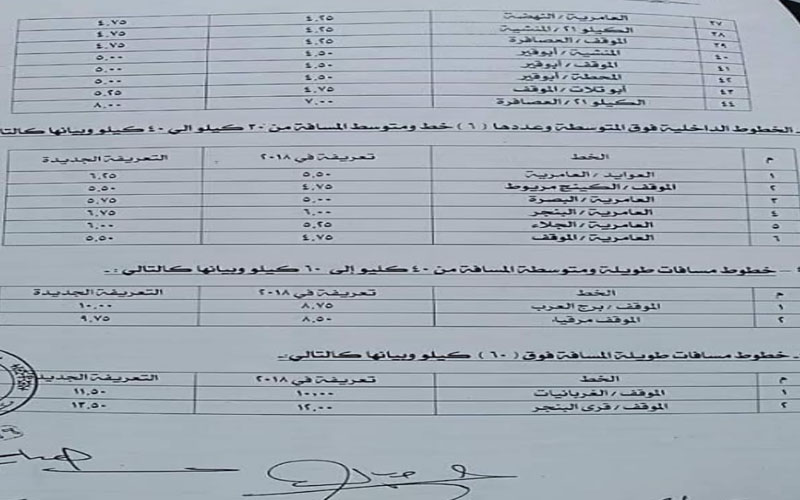 ٣٧ العامرية / النهضة ٤.٢٥ ٤.٧٥
٣٨ الكيلو ٢١ / المنشية ٤.٢٥ ٤.٧٥
٣٩ الموقف / العصافرة ٤.٢٥ ٤.٧٥
٤٠ المنشية / أبوقير ٤.٥٠ ٥.٠٠
٤١ الموقف / أبوقير ٤.٥٠ ٥.٠٠
٤٢ المحطة / أبوقير ٤.٥٠ ٥.٠٠
٤٣ أبو تلات / الموقف ٤.٧٥ ٥.٢٥
٤٤ الكيلو ٢١ / العصافرة ٧.٠٠ ٨.٠٠
ـ الخطوط الداخلية فوق المتوسطة وعددها (٦) خط ومتوسط المسافة من ٣٠ كيلو الى ٤٠ كيلو وبيانها كالتا
م الخط تعريفة في ٢٠١٨ التعريفة الجديدة
١ العوايد / العامرية ٥.٥٠ ٦.٢٥
٢ الموقف / الكينج مريوط ٤.٧٥ ٥.٥٠
٣ العامرية / البصرة ٥.٠٠ ٥.٧٥
٤ العامرية / البنجر ٦.٠٠ ٦.٧٥
٥ العامرية / الجلاء ٥.٢٥ ٦.٠٠
٦ العامرية / الموقف ٤.٧٥ ٥.٥٠
ـ خطوط مسافات طويلة ومتوسطة المسافة من ٤٠ كليو إلى ٦٠ كيلو وبيانها كالتالي :ـ
م الخط تعريفة في ٢٠١٨ التعريفة الجديدة
١ الموقف / برج العرب ٨.٧٥ ١٠.٠٠
٢ الموقف مرقيا ٨.٥٠ ٩.٧٥
ـ خطوط مسافات طويلة المسافة فوق (٦٠) كيلو وبيانها كالتالي:ـ
م الخط تعريفة في ٢٠١٨ التعريفة الجديدة
١ الموقف / الغربانيات ١٠.٠٠ ١١.٥٠
٢ الموقف / قرى البنجر ١٢.٠٠ ١٣.٥٠